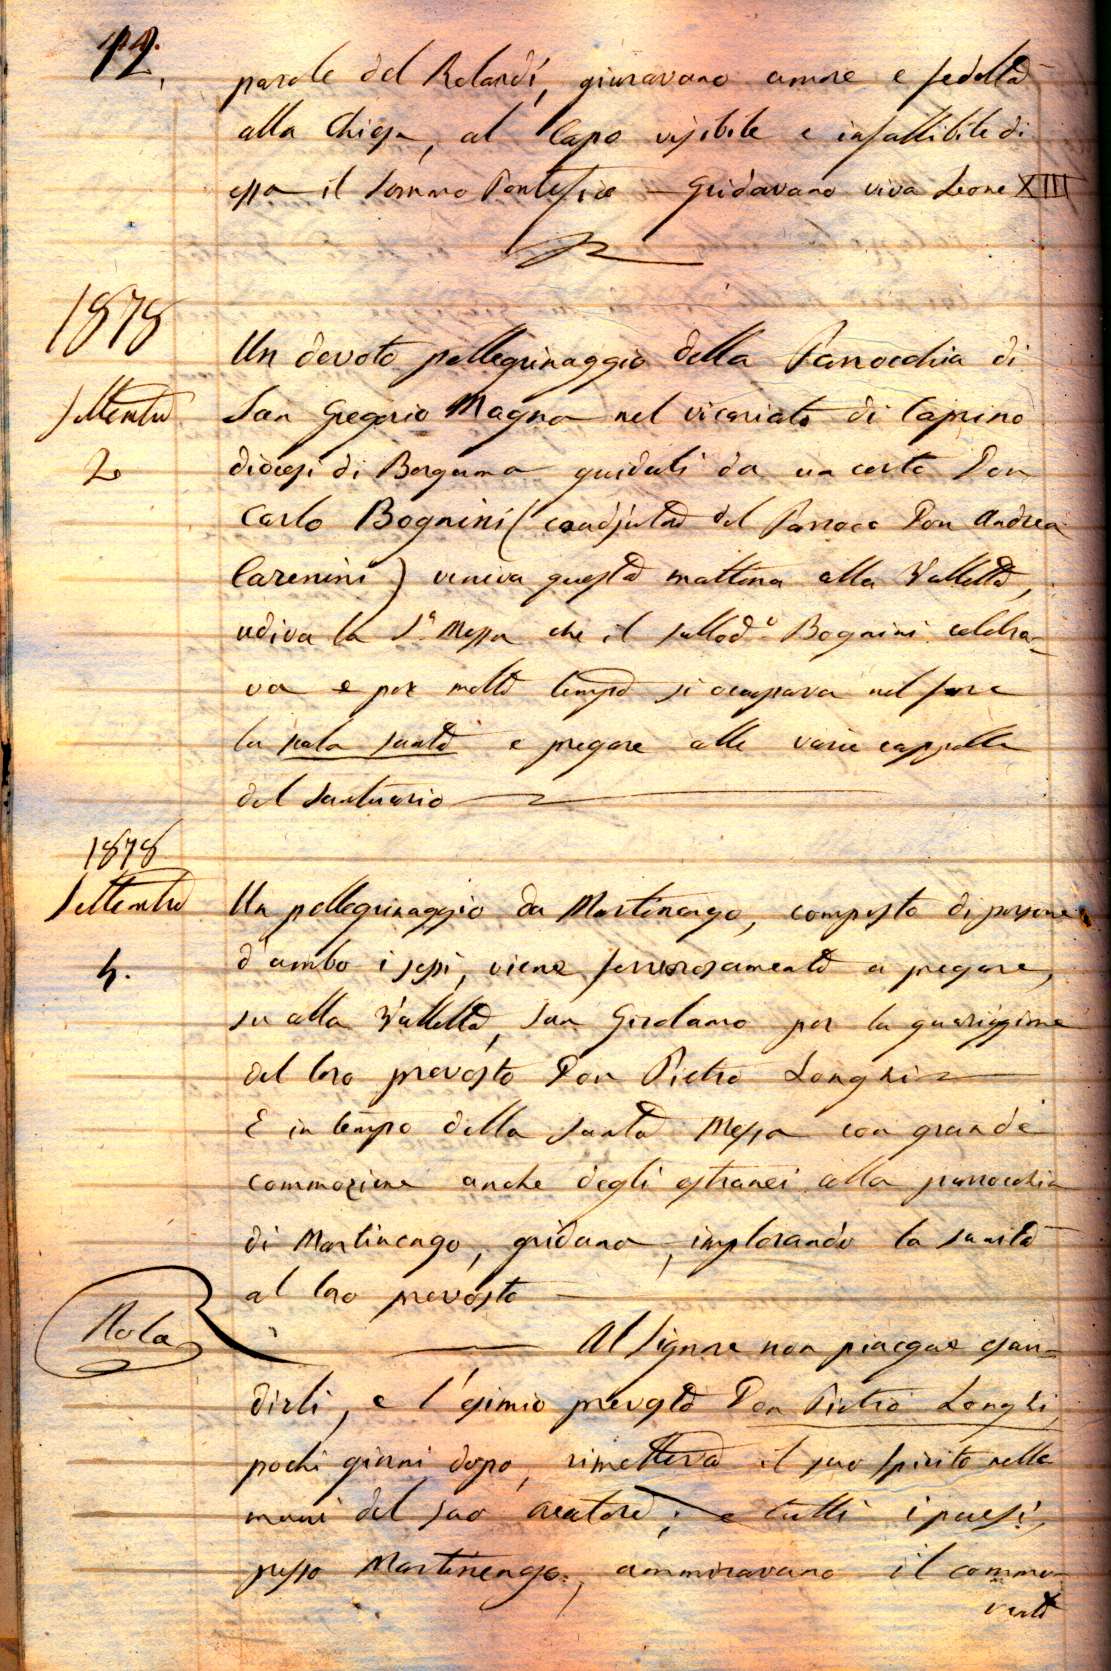 12.
parole del Rolandi, giuravano amore e fedeltà
alla Chiesa, al Capo visibile e infallibile di
essa il Sommo Pontefice — Gridavano viva Leone XIII
1878
Settembre
2
Un devoto pellegrinaggio della Parrocchia di
San Gregorio Magno nel vicariato di Caprino
diocesi di Bergamo guidati da un certo Don
Carlo Bognini (coadjutore del Parroco Don Andrea
Carenini) veniva questa mattina alla Valletta,
udiva la S.a Messa che il sullod.o Bognini celebra-
va e per molto tempo si occupava nel fare
la scala santa e pregare alle varie cappelle
del santuario —
1878
Settembre
4.
Un pellegrinaggio da Martinengo, composto di persone
d'ambo i sessi, viene fervorosamente a pregare,
su alla Valletta, San Girolamo per la guarigione
del loro prevosto Don Pietro Longhi —
E in tempo della santa Messa con grande
commozione anche degli estranei alla parrocchia
di Martinengo, gridano, implorando la sanità
al loro prevosto —
Nota
— Al Signore non piacque esau=
dirli, e l'esimio prevosto Don Pietro Longhi,
pochi giorni dopo, rimetteva il suo spirito nelle
mani del suo Creatore; e tutti i paesi,
presso Martinengo, ammiravano il commo-
vente